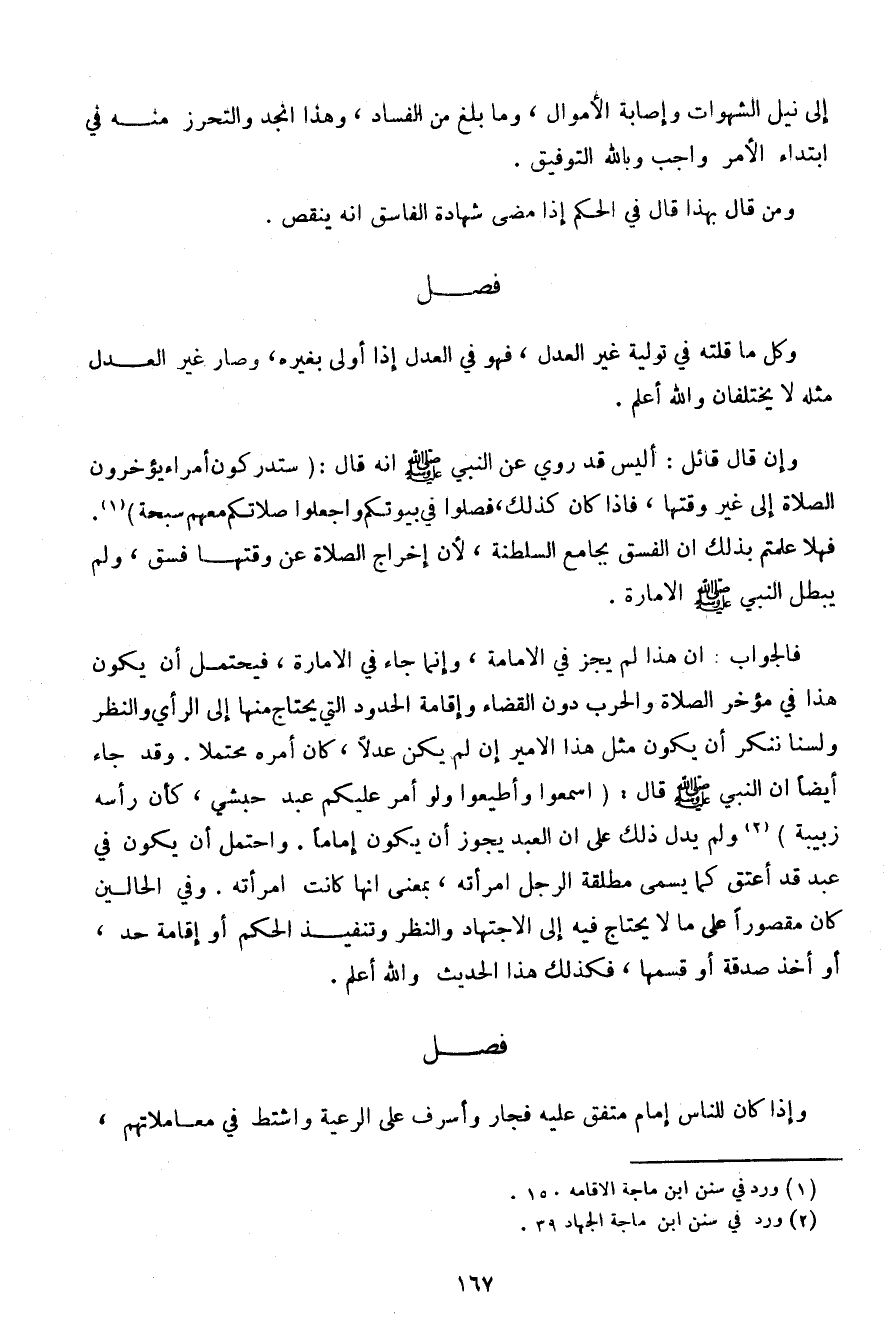 إلى نيل الشهوات وإصابة الأموال ، وما بلغ من الفساد ، وهذا انجد والتحرز منــــه في
ابتداء الأمر واجب وبالله التوفيق .
ومن قال بهذا قال في الحكم إذا مضى شهادة الفاسق انه ينقص .
فصــــل
وكل ما قلته في تولية غير العدل ، فهو في العدل إذا أولى بغيره، وصار غير العــــدل
مثله لا يختلفان والله أعلم .
وإن قال قائل : أليس قد روي عن النبي ﷺ انه قال :( ستدركون أمراء يؤخرون
الصلاة إلى غير وقتها ، فاذا كان كذلك، فصلوا في بيوتكم واجعلوا صلاتكم معهم سبحة )(١).
فهلا علمتم بذلك ان الفسق يجامع السلطنة ، لأن إخراج الصلاة عن وقتهــا فسق ، ولم
يبطل النبي ﷺ الامارة .
فالجواب : ان هذا لم يجز في الامامة ، وإنما جاء في الامارة ، فيحتمــل أن يكون
هذا في مؤخر الصلاة والحرب دون القضاء وإقامة الحدود التي يحتاج منها إلى الرأي والنظر
ولسنا ننكر أن يكون مثل هذا الامير إن لم يكن عدلاً ، كان أمره محتملا . وقد جاء
أيضاً ان النبي ﷺ قال : ( اسمعوا وأطيعوا ولو أمر عليكم عبد حبشي ، كأن رأسه
زبيبة ) (٢) ولم يدل ذلك على ان العبد يجوز أن يكون إماماً . واحتمل أن يكون في
عبد قد أعتق كما يسمى مطلقة الرجل امرأته ، بمعنى انها كانت امرأته . وفي الحالــين
كان مقصوراً على ما لا يحتاج فيه إلى الاجتهاد والنظر وتنفيــــذ الحكم أو إقامة حد ،
أو أخذ صدقة أو قسمها ، فكذلك هذا الحديث والله أعلم .
فصــــل
وإذا كان للناس إمام متفق عليه فجار وأسرف على الرعية واشتط في معــاملاتهم ،
(١) ورد في سنن ابن ماجة الاقامه ١٥٠ .
(٢) ورد في سنن ابن ماجة الجهاد ٣٩ .
١٦٧